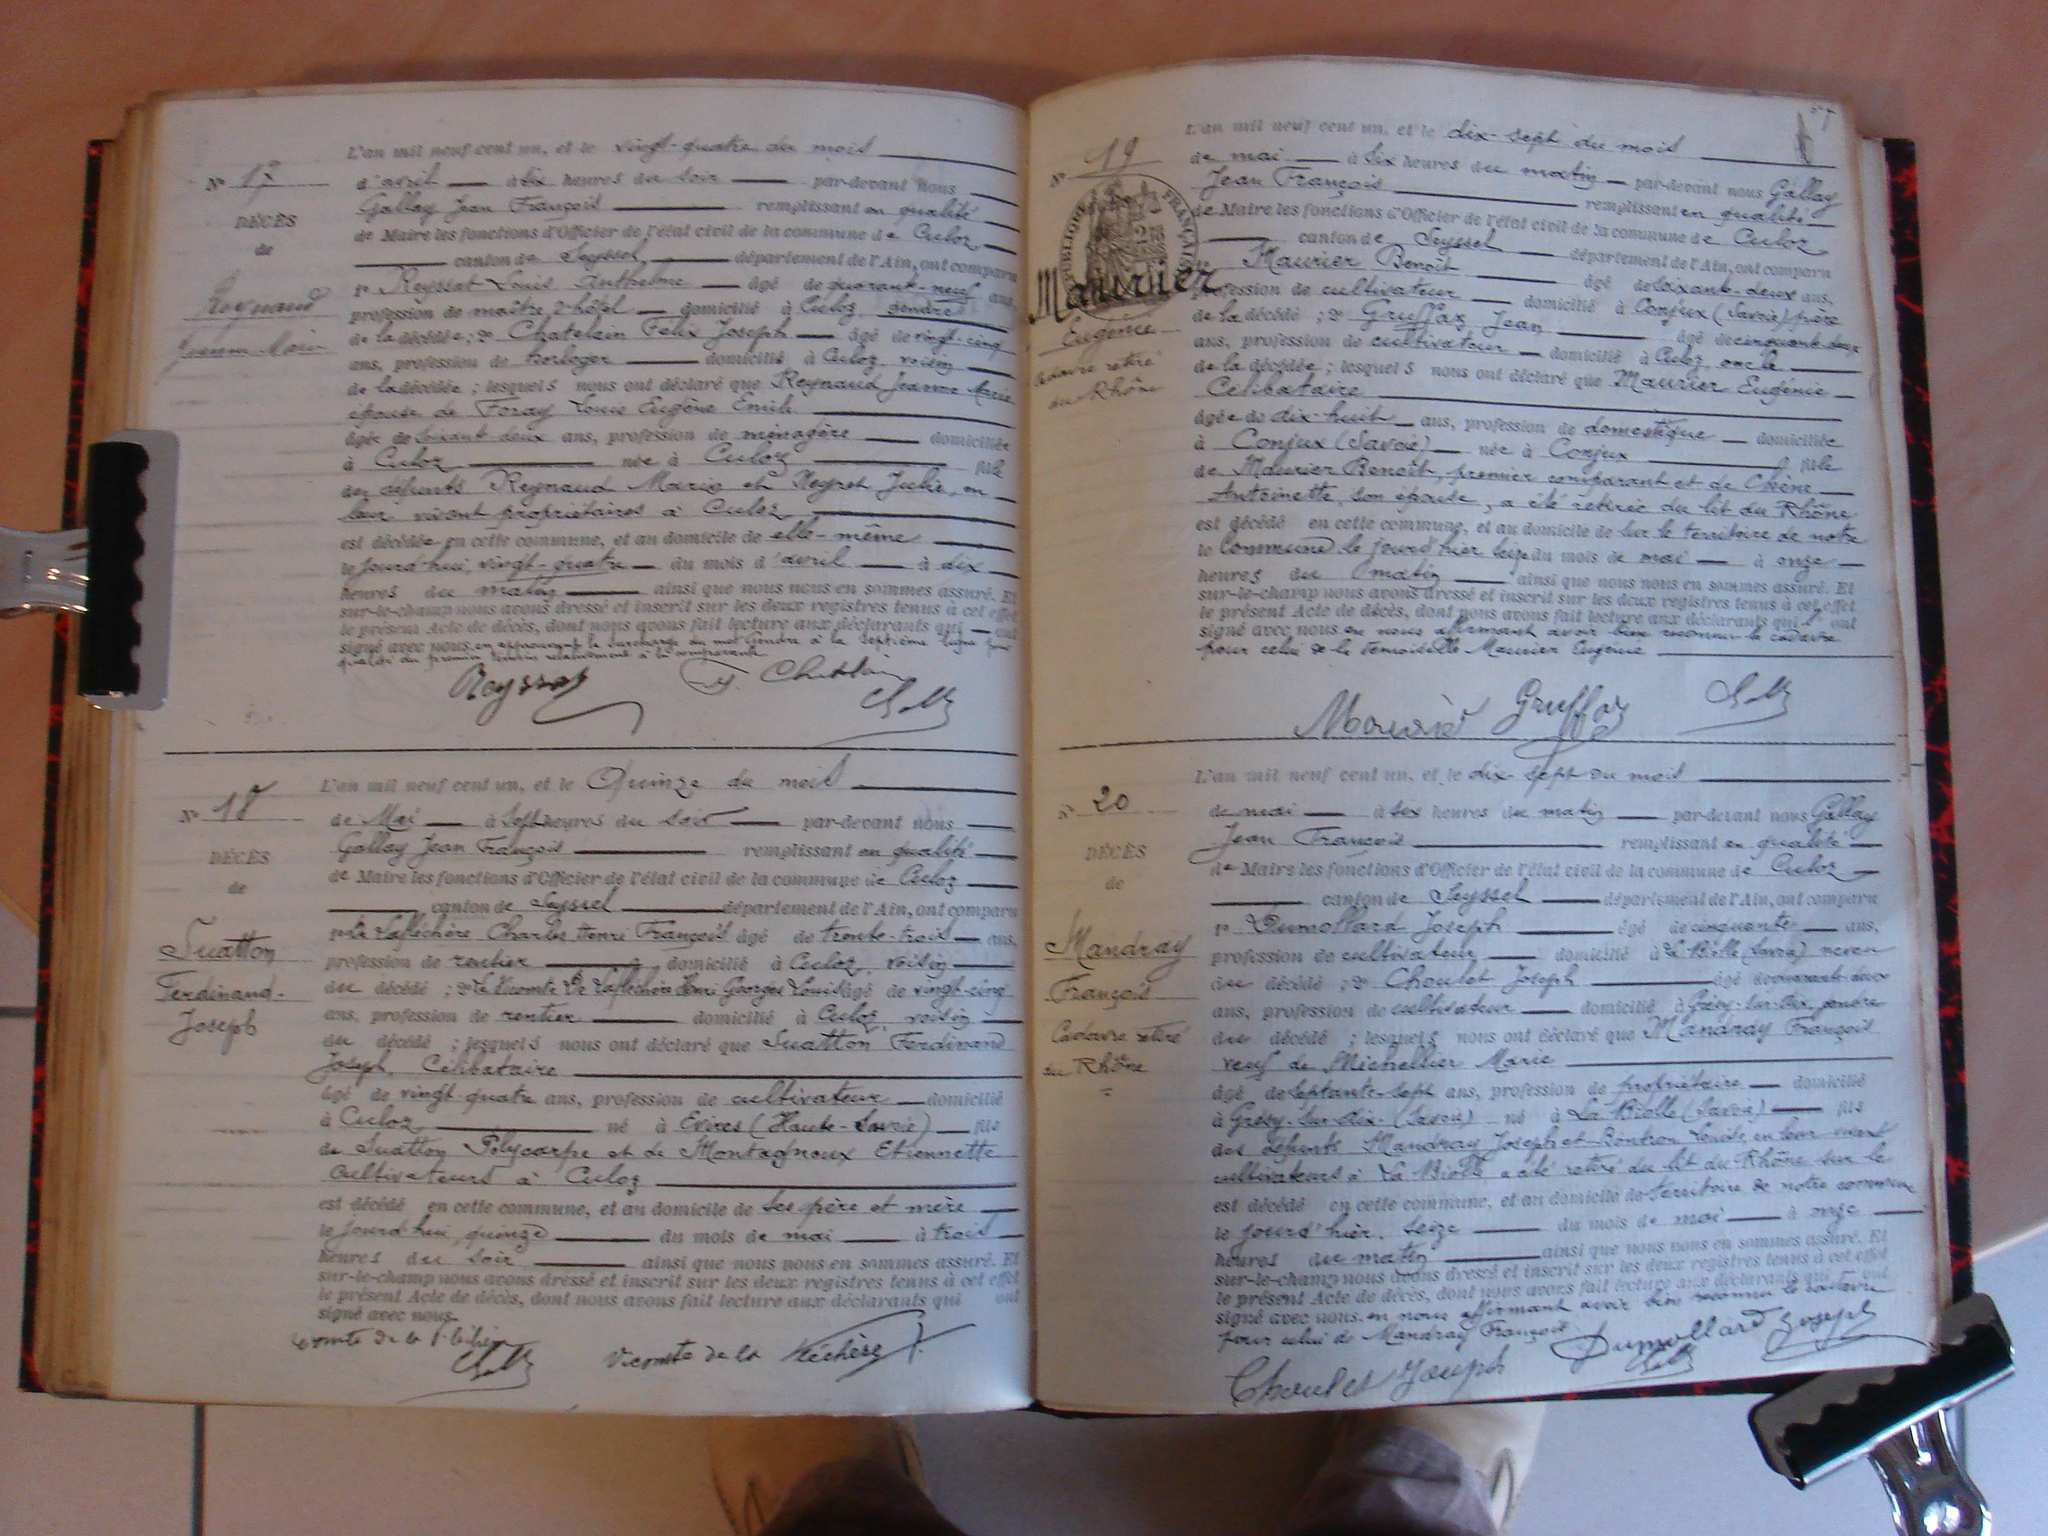 L'an mil neuf cent un, et le vingt-quatre du mois
N° 17
d'avril à six heures du soir par-devant nous
Gallay Jean François remplissant en qualité
DÉCÈS
de Maire les fonctions d'Officier de l'état civil de la commune de Culoz
de
canton de Seyssel, département de l'Ain, ont comparu
Reynaud
Jeanne Marie
1° Reyssat Louis Anthelme âgé de quarante-neuf ans,
profession de maître d'hôtel domicilié à Culoz, gendre
de la décédée; 2° Chatelain Félix Joseph âgé de vingt-cinq
ans, profession de horloger domicilié à Culoz, voisin
de la décédée; lesquels nous ont déclaré que Reynaud Jeanne Marie
épouse de Foray Louis Eugène Emile
âgée de soixante-deux ans, profession de ménagère domiciliée
à Culoz née à Culoz fille
des défunts Reynaud Marin et Neyret Julie, en
leur vivant propriétaires à Culoz
est décédée en cette commune, et au domicile de elle-même
le jourd'hui, vingt-quatre du mois d'avril à dix
heures du matin ainsi que nous nous en sommes assuré. Et
sur-le-champ nous avons dressé et inscrit sur les deux registres tenus à cet effet
le présent Acte de décès, dont nous avons fait lecture aux déclarants qui ont
signé avec nous en approuvant la surcharge du mot Gendre à la septième ligne
qualité du premier témoin
Reyssat F. Chatelain
L'an mil neuf cent un, et le Quinze du mois
N° 18
de Mai à Sept heures du soir par-devant nous
Gallay Jean François remplissant en qualité
DÉCÈS
de Maire les fonctions d'Officier de l'état civil de la commune de Culoz
de
canton de Seyssel département de l'Ain, ont comparu
Suatton
Ferdinand-
Joseph
1° de Lafléchère Charles Henri François âgé de trente-trois ans,
profession de rentier domicilié à Culoz, voisin
du décédé; 2° Le Vicomte De Lafléchère Henri Georges Louis âgé de vingt-cinq
ans, profession de rentier domicilié à Culoz, voisin
du décédé; lesquels nous ont déclaré que Suatton Ferdinand
Joseph, Célibataire
âgé de vingt-quatre ans, profession de cultivateur domicilié
à Culoz né à Evires (Haute-Savoie) fils
de Suatton Polycarpe et de Montagnoux Etiennette
cultivateurs à Culoz
est décédé en cette commune, et au domicile de ses père et mère
le jourd'hui, quinze du mois de mai à trois
heures du soir ainsi que nous nous en sommes assuré. Et
sur-le-champ nous avons dressé et inscrit sur les deux registres tenus à cet effet
le présent Acte de décès, dont nous avons fait lecture aux déclarants qui ont
signé avec nous.
Comte de la Fléchère Vicomte de la Fléchère
57
L'an mil neuf cent un, et le dix-sept du mois
N° 19
de mai à six heures du matin par-devant nous Gallay
Jean François remplissant en qualité
RÉPUBLIQUE FRANÇAISE
de Maire les fonctions d'Officier de l'état civil de la commune de Culoz
canton de Seyssel département de l'Ain, ont comparu
Maurier
Eugénie
Cadavre retiré
du Rhône
1° Maurier Benoît âgé de soixante-deux ans,
profession de cultivateur domicilié à Conjux (Savoie) père
de la décédé; 2° Gruffaz Jean âgé de cinquante-deux
ans, profession de cultivateur domicilié à Culoz, oncle
de la décédée; lesquels nous ont déclaré que Maurier Eugénie
Célibataire
âgée de dix-huit ans, profession de domestique domiciliée
à Conjux (Savoie) née à Conjux fille
de Maurier Benoît, premier comparant et de Chêne
Antoinette, son épouse, a été retirée du lit du Rhône
est décédé en cette commune, et au domicile de sur le territoire de notre
le commune le jourd'hier seize du mois de mai à onze
heures du matin ainsi que nous nous en sommes assuré. Et
sur-le-champ nous avons dressé et inscrit sur les deux registres tenus à cet effet
le présent Acte de décès, dont nous avons fait lecture aux déclarants qui ont
signé avec nous en nous affirmant avoir bien reconnu le cadavre
pour celui de la demoiselle Maurier Eugénie
Gruffaz
L'an mil neuf cent un, et le dix-sept du mois
N° 20
de mai à six heures du matin par-devant nous Gallay
Jean François remplissant en qualité
DÉCÈS
de Maire les fonctions d'Officier de l'état civil de la commune de Culoz
de
canton de Seyssel département de l'Ain, ont comparu
Mandray
François
Cadavre retiré
du Rhône
1° Dumollard Joseph âgé de cinquante ans,
profession de cultivateur domicilié à La Biolle (Savoie) neveu
du décédé; 2° Choulet Joseph âgé de quarante-deux
ans, profession de cultivateur domicilié à Grésy-sur-Aix, gendre
du décédé; lesquels nous ont déclaré que Mandray François
veuf de Michellier Marie
âgé de septante-sept ans, profession de propriétaire domicilié
à Grésy-sur-Aix (Savoie) né à La Biolle (Savoie) fils
des défunts Mandray Joseph et Bontron Louise, en leur vivant
cultivateurs à La Biolle, a été retiré du lit du Rhône sur le
est décédé en cette commune, et au domicile de territoire de notre commune
le jourd'hier, seize du mois de mai à onze
heures du matin ainsi que nous nous en sommes assuré. Et
sur-le-champ nous avons dressé et inscrit sur les deux registres tenus à cet effet
le présent Acte de décès, dont nous avons fait lecture aux déclarants qui ont
signé avec nous en nous affirmant avoir bien reconnu le cadavre
pour celui de Mandray François Dumollard Joseph
Choulet Joseph